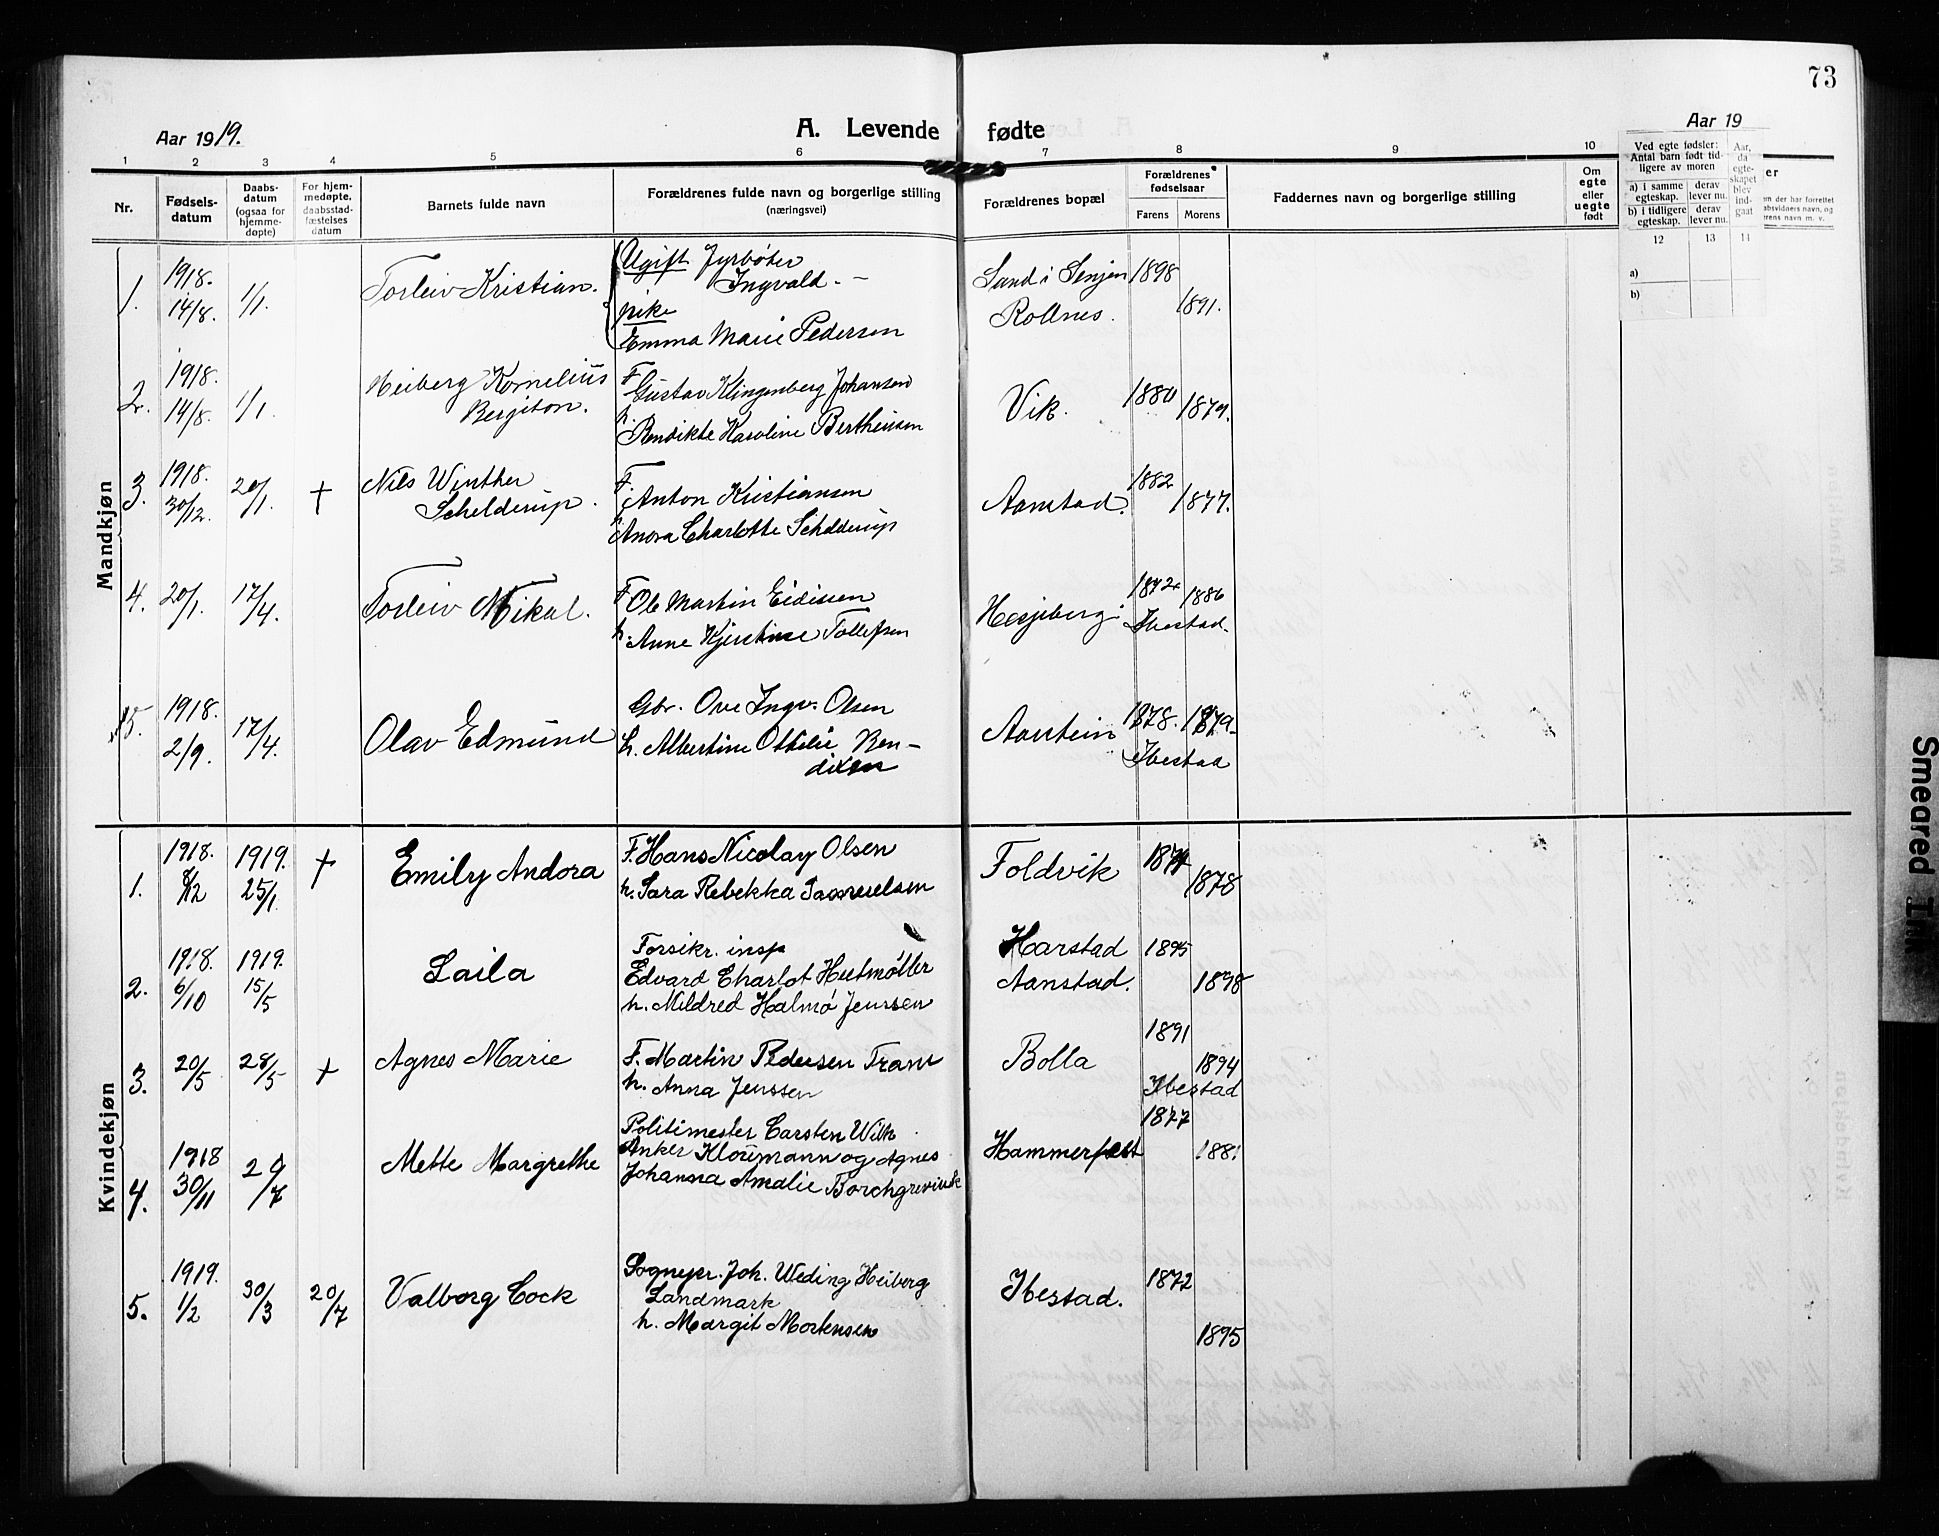 73
Aar 1919.
A. Levende fødte
Aar 19
1 2 3 4 5 6 7 8 9 10
Nr.
Fødsels-
datum
Daabs-
datum
(ogsaa for
hjemme-
døpte)
For hjem-
medøpte,
daabsstad-
fæstelses
datum
Barnets fulde navn
Forældrenes fulde navn og borgerlige stilling
(næringsvei)
Forældrenes bopæl
Forældrenes
fødselsaar
Farens Morens
Faddernes navn og borgerlige stilling
Om
egte
eller
uegte
født
Ved egte fødsler:
Antal barn født tid-
ligere av moren
a) i samme
egteskap.
derav
lever nu.
b) i tidligere
egteskap.
derav
lever nu.
Aar,
da
egte-
skapet
blev
ind-
gaat
12 13 14
a)
b)
er
m der har forrettet
absvidners navn, og
rens navn m. v.
Mandkjøn
1. 1918. 14/8. 1/1. Torleiv Kristian.
Ugift Fyrbøter
Ingvald. –
pike
Emma Marie Pedersen
Sand i Senjen 1898
Rollnes. 1891.
2. 1918. 14/8. 1/1. Heiberg Kornelius
Bergiton.
F. Gustav Klingenberg Johansen
h. Bendikte Karoline Bertheussen
Vik. 1880 1879.
3. 1918. 30/12. 20/1. † Nils Winther
Schelderup.
F. Anton Kristiansen
h. Anora Charlotte Schelderup
Aanstad. 1882 1877.
4. 20/1. 17/4. Torleiv Mikal.
F. Ole Martin Eidissen
h. Anne Kjerstine Tollefsen
Hesjeberg i Ibestad. 1886
5. 1918. 2/9. 17/4. Olav Edmund
Gbr. Ove Ingv. Olsen
h. Albertine Ottilie Ben-
dixen
Aanstein 1878. 1879.
Ibestad
Kvindekjøn
1. 1918. 8/12 1919. 25/1. † Emily Andora
F. Hans Nicolay Olsen
h. Sara Rebekka Samuelsen
Foldvik 1878
2. 1918. 6/10 1919. 15/5 Laila
Forsikr. insp
Edvard Charlot Heitmøller
h. Mildred Halmø Jenssen
Harstad 1895
Aanstad. 1898
3. 20/5 28/5 † Agnes Marie
F. Martin Pedersen Trane
h. Anna Jenssen
Bolla 1891 1894
Ibestad
4. 1918 30/11 20/7 Mette Margrethe
Politimester Carsten Wilh.
Anker Kloumann og Agnes
Johanna Amalie Borchgrevink
Hammerfest 1877 1881
5. 1919. 1/2 30/3 20/7 Valborg Cock
Sognepr. Joh. Weding Heiberg
Landmark
h. Margit Mortensen
Ibestad. 1872 1895
Smeared Ink